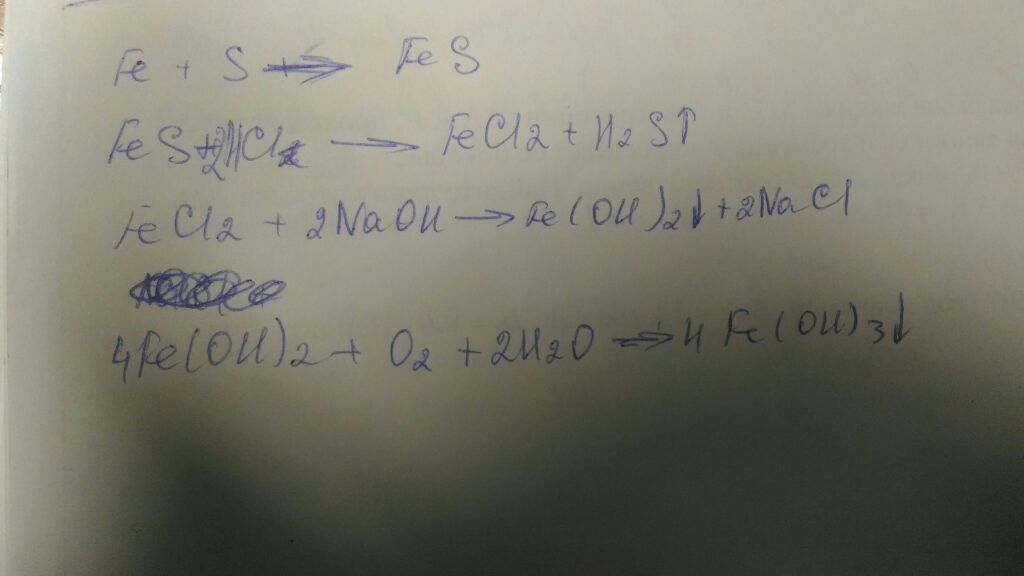 Fe + S → FeS
FeS + 2HCl → FeCl2 + H2S↑
FeCl2 + 2NaOH → Fe(OH)2↓ + 2NaCl
4Fe(OH)2 + O2 + 2H2O → 4Fe(OH)3↓